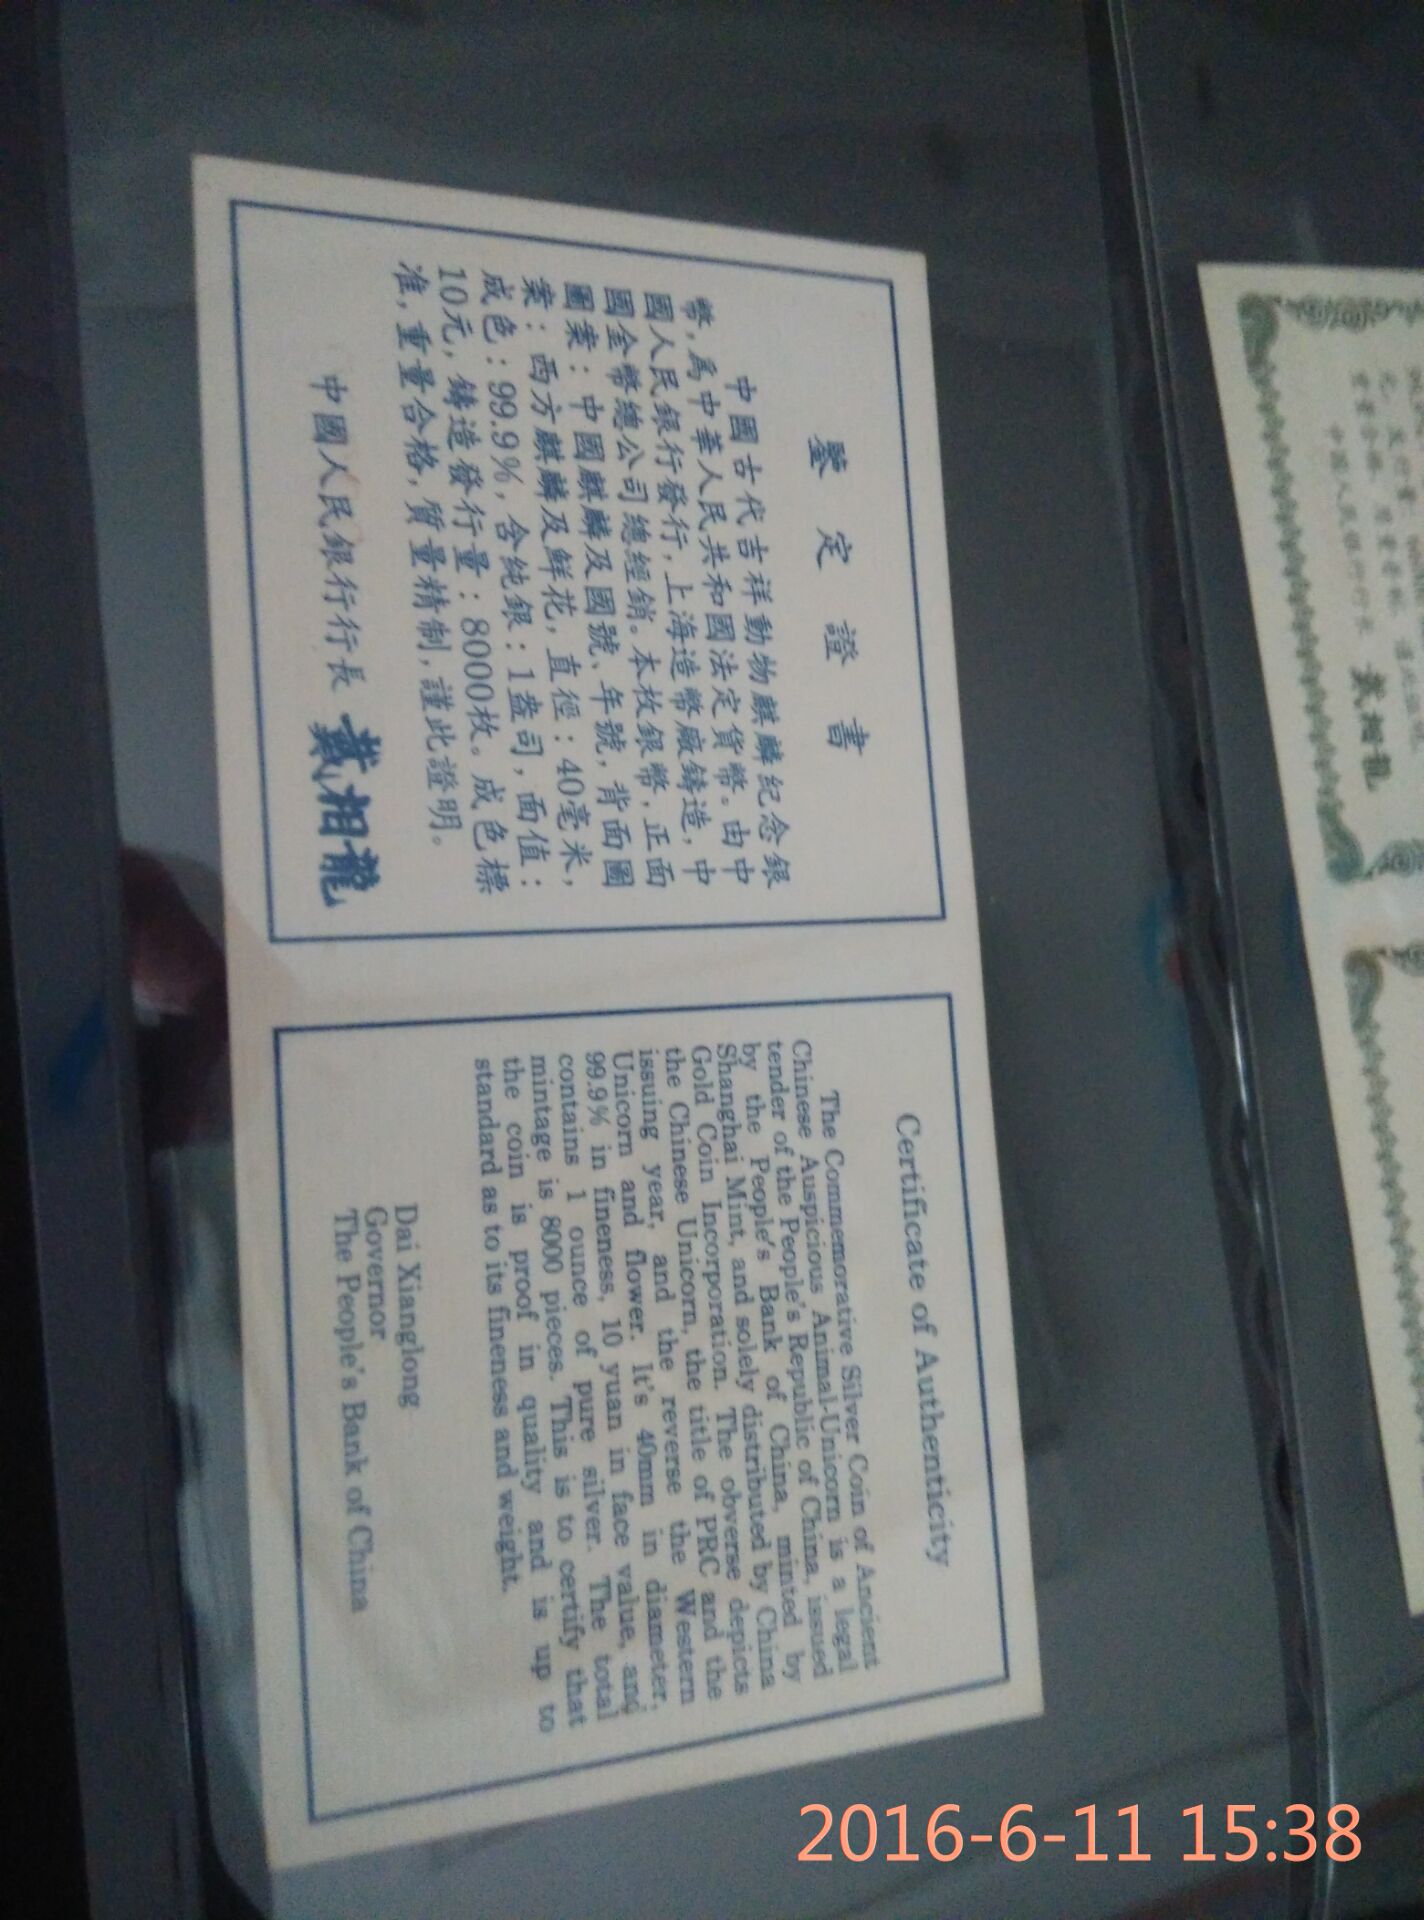 鑒定證書
中國古代吉祥動物麒麟纪念銀
幣，爲中華人民共和國法定貨幣。由中
國人民銀行發行，上海造幣廠鑄造，中
國金幣總公司總經銷。本枚銀幣，正面
圖案：中國麒麟及國號、年號，背面圖
案：西方麒麟及鮮花，直徑：40毫米，
成色：99.9%，含純銀：1盎司，面值：
10元，鑄造發行量：8000枚。成色標
准，重量合格，質量精制，謹此證明。
中國人民銀行行長 戴相龍
Certificate of Authenticity
The Commemorative Silver Coin of Ancient
Chinese Auspicious Animal-Unicorn is a legal
tender of the People's Republic of China, issued
by the People's Bank of China, minted by
Shanghai Mint, and solely distributed by China
Gold Coin Incorporation. The obverse depicts
the Chinese Unicorn, the title of PRC and the
issuing year, and the reverse the Western
Unicorn and flower. It's 40mm in diameter,
99.9% in fineness, 10 yuan in face value, and
contains 1 ounce of pure silver. The total
mintage is 8000 pieces. This is to certify that
the coin is proof in quality and is up to
standard as to its fineness and weight.
Dai Xianglong
Governor
The People's Bank of China
中國人民銀行行長 戴相龍
2016-6-11 15:38